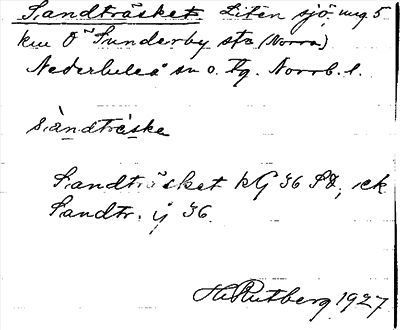 Sandträsket. Liten sjö, ung 5
km O Sunderby stn (Norra)
Nederluleå sn o. tg. Norrb. l.
sàndtrèske
Sandträsket kG 36 SO, ek
Sandtr. ij 36.
H Rutberg 1927